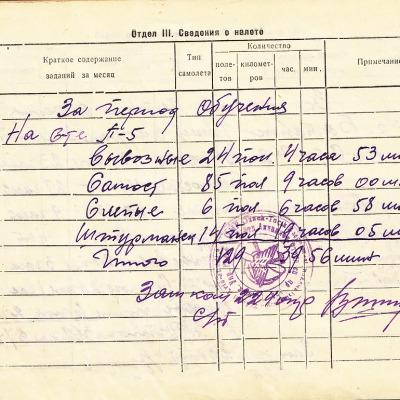 Отдел III. Сведения о налете
Краткое содержание заданий за месяц
Тип самолета
Количество
полетов
километров
час.
мин.
Примечание
За период обучения
На с-те П-5
Вывозные 24 пол. 4 часа 53 ми
Самост 85 пол 9 часов 00 ми
Слепые 6 пол 6 часов 58 ми
Штурманск 14 пол 19 часов 05 ми
Итого 129 39.56 мин